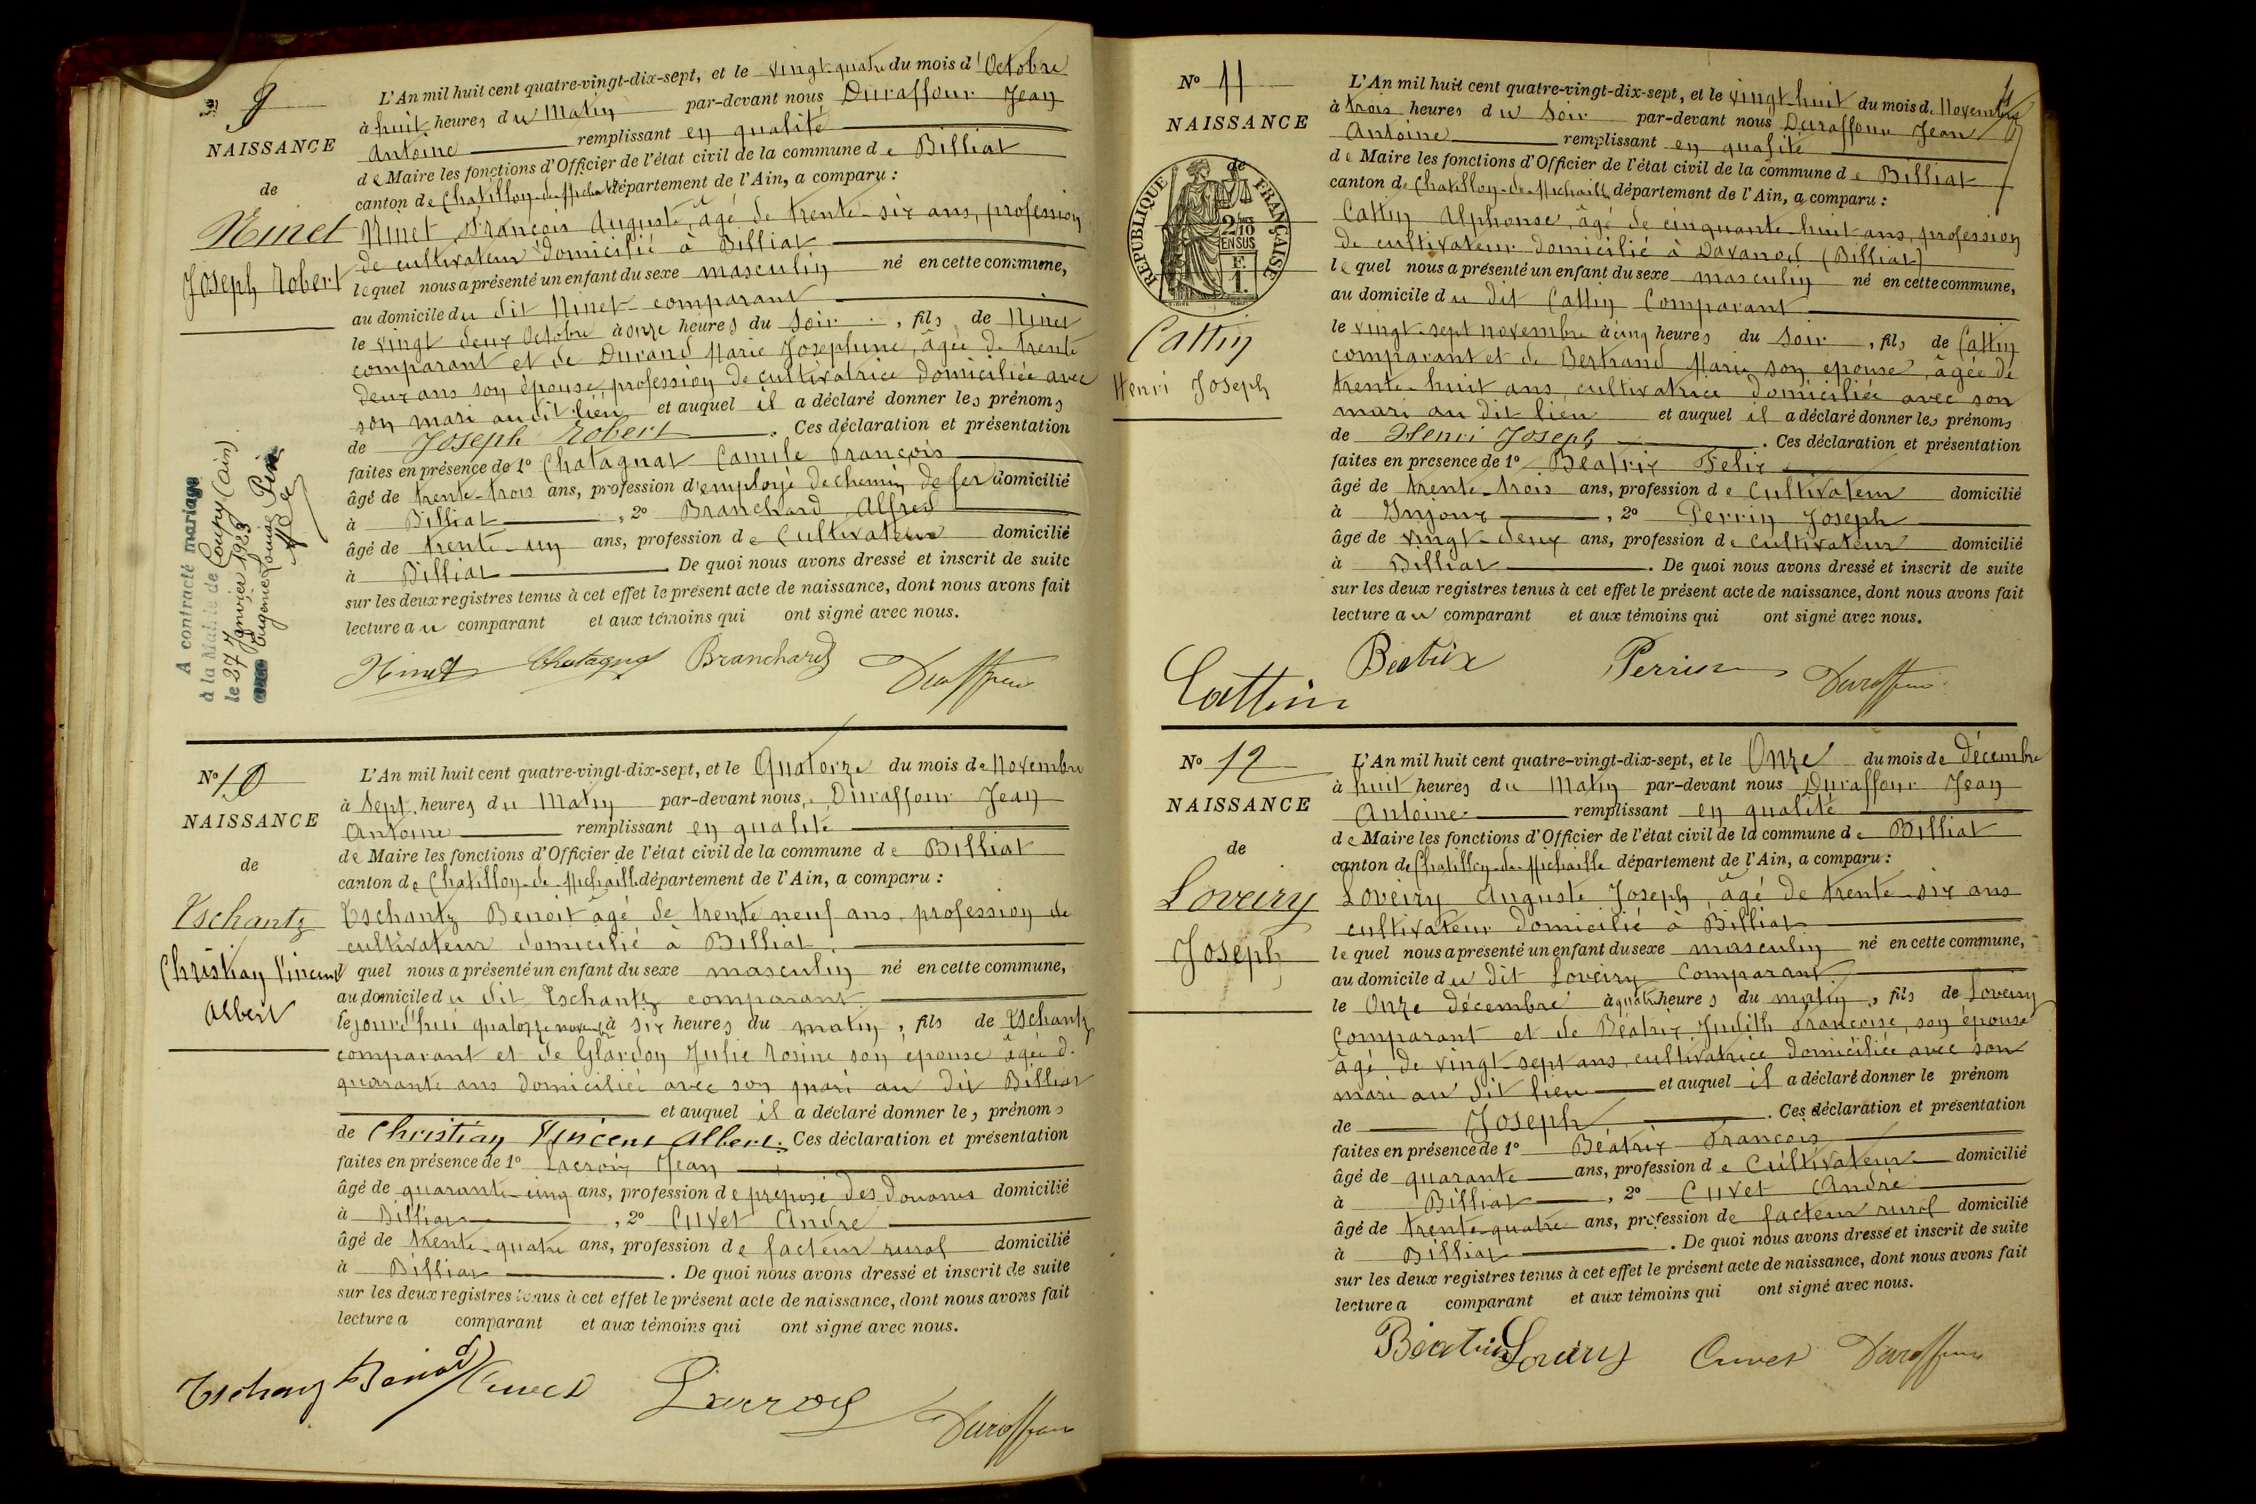 N° 9
NAISSANCE
de
Ninet
Joseph Robert
A contracté mariage
à la Mairie de Coupy (Ain)
le 27 Janvier 1923
Eugénie Louise
L'An mil huit cent quatre-vingt-dix-sept, et le vingt-quatre du mois d'Octobre
à huit heures du Matin par-devant nous Duraffour Jean
Antoine remplissant en qualité
de Maire les fonctions d'Officier de l'état civil de la commune de Billiat
canton de Chatillon-de-Michaille département de l'Ain, a comparu :
Ninet François Auguste, âgé de trente-six ans, profession
de cultivateur domicilié à Billiat
lequel nous a présenté un enfant du sexe masculin né en cette commune,
au domicile du dit Ninet comparant
le vingt deux Octobre à onze heures du Soir, fils de Ninet
comparant et de Durand Marie Josephine, âgée de trente
deux ans son épouse, profession de cultivatrice domiciliée avec
son mari au dit lieu et auquel il a déclaré donner les prénoms
de Joseph Robert. Ces déclaration et présentation
faites en présence de 1° Chatagnat Camile François
âgé de trente-trois ans, profession d'employé de chemin de fer domicilié
à Billiat, 2° Branchard Alfred
âgé de trente-un ans, profession de Cultivateur domicilié
à Billiat. De quoi nous avons dressé et inscrit de suite
sur les deux registres tenus à cet effet le présent acte de naissance, dont nous avons fait
lecture au comparant et aux témoins qui ont signé avec nous.
Ninet Chatagnat Branchard Duraffour
N° 10
NAISSANCE
de
Tschantz
Christian Vincent
Albert
L'An mil huit cent quatre-vingt-dix-sept, et le Quatorze du mois de Novembre
à Sept heures du Matin par-devant nous, Duraffour Jean
Antoine remplissant en qualité
de Maire les fonctions d'Officier de l'état civil de la commune de Billiat
canton de Chatillon-de-Michaille département de l'Ain, a comparu :
Tschantz Benoit âgé de trente neuf ans, profession de
cultivateur domicilié à Billiat
quel nous a présenté un enfant du sexe masculin né en cette commune,
au domicile du dit Tschantz comparant
le jourd'hui quatorze novembre à six heures du matin, fils de Tschantz
comparant et de Glardon Julie Rosine son épouse âgée de
quarante ans domiciliée avec son mari au dit Billiat
et auquel il a déclaré donner les prénoms
de Christian Vincent Albert. Ces déclaration et présentation
faites en présence de 1° Lacroix Jean
âgé de quarante-cinq ans, profession de préposé des douanes domicilié
à Billiat, 2° Cuvet André
âgé de trente-quatre ans, profession de facteur rural domicilié
à Billiat. De quoi nous avons dressé et inscrit de suite
sur les deux registres tenus à cet effet le présent acte de naissance, dont nous avons fait
lecture a comparant et aux témoins qui ont signé avec nous.
Tschanz Benoit Cuvet Lacroix Duraffour
N° 11
NAISSANCE
de
REPUBLIQUE FRANÇAISE
2/10
EN SUS
F.
1.
Cattin
Henri Joseph
L'An mil huit cent quatre-vingt-dix-sept, et le vingt-huit du mois d. Novembre
à trois heures du Soir par-devant nous Duraffour Jean
Antoine remplissant en qualité
de Maire les fonctions d'Officier de l'état civil de la commune de Billiat
canton de Chatillon-de-Michaille département de l'Ain, a comparu :
Cattin Alphonse, âgé de cinquante-huit ans, profession
de cultivateur domicilié à Davanod (Billiat)
lequel nous a présenté un enfant du sexe masculin né en cette commune,
au domicile du dit Cattin Comparant
le vingt-sept novembre à cinq heures du Soir, fils de Cattin
comparant et de Bertrand Marie son épouse, âgée de
trente-huit ans, cultivatrice domiciliée avec son
mari au dit lieu et auquel il a déclaré donner les prénoms
de Henri Joseph. Ces déclaration et présentation
faites en présence de 1° Béatrix Felix
âgé de trente-trois ans, profession de Cultivateur domicilié
à Injoux, 2° Perrin Joseph
âgé de vingt-deux ans, profession de cultivateur domicilié
à Billiat. De quoi nous avons dressé et inscrit de suite
sur les deux registres tenus à cet effet le présent acte de naissance, dont nous avons fait
lecture au comparant et aux témoins qui ont signé avec nous.
Cattin Beatrix Perrin Duraffour
N° 12
NAISSANCE
de
Loveiry
Joseph
L'An mil huit cent quatre-vingt-dix-sept, et le Onze du mois de décembre
à huit heures du Matin par-devant nous Duraffour Jean
Antoine remplissant en qualité
de Maire les fonctions d'Officier de l'état civil de la commune de Billiat
canton de Chatillon-de-Michaille département de l'Ain, a comparu :
Loveiry Auguste Joseph, âgé de trente-six ans
cultivateur domicilié à Billiat
lequel nous a présenté un enfant du sexe masculin né en cette commune,
au domicile du dit Loveiry Comparant
le Onze décembre à quatre heures du matin, fils de Loveiry
Comparant et de Béatrix Judith Françoise, son épouse
âgé de vingt-sept ans, cultivatrice domiciliée avec son
mari au dit lieu et auquel il a déclaré donner le prénom
de Joseph. Ces déclaration et présentation
faites en présence de 1° Béatrix François
âgé de quarante ans, profession de Cultivateur domicilié
à Billiat, 2° Cuvet André
âgé de trente-quatre ans, profession de facteur rural domicilié
à Billiat. De quoi nous avons dressé et inscrit de suite
sur les deux registres tenus à cet effet le présent acte de naissance, dont nous avons fait
lecture a comparant et aux témoins qui ont signé avec nous.
Béatrix Loveiry Cuvet Duraffour